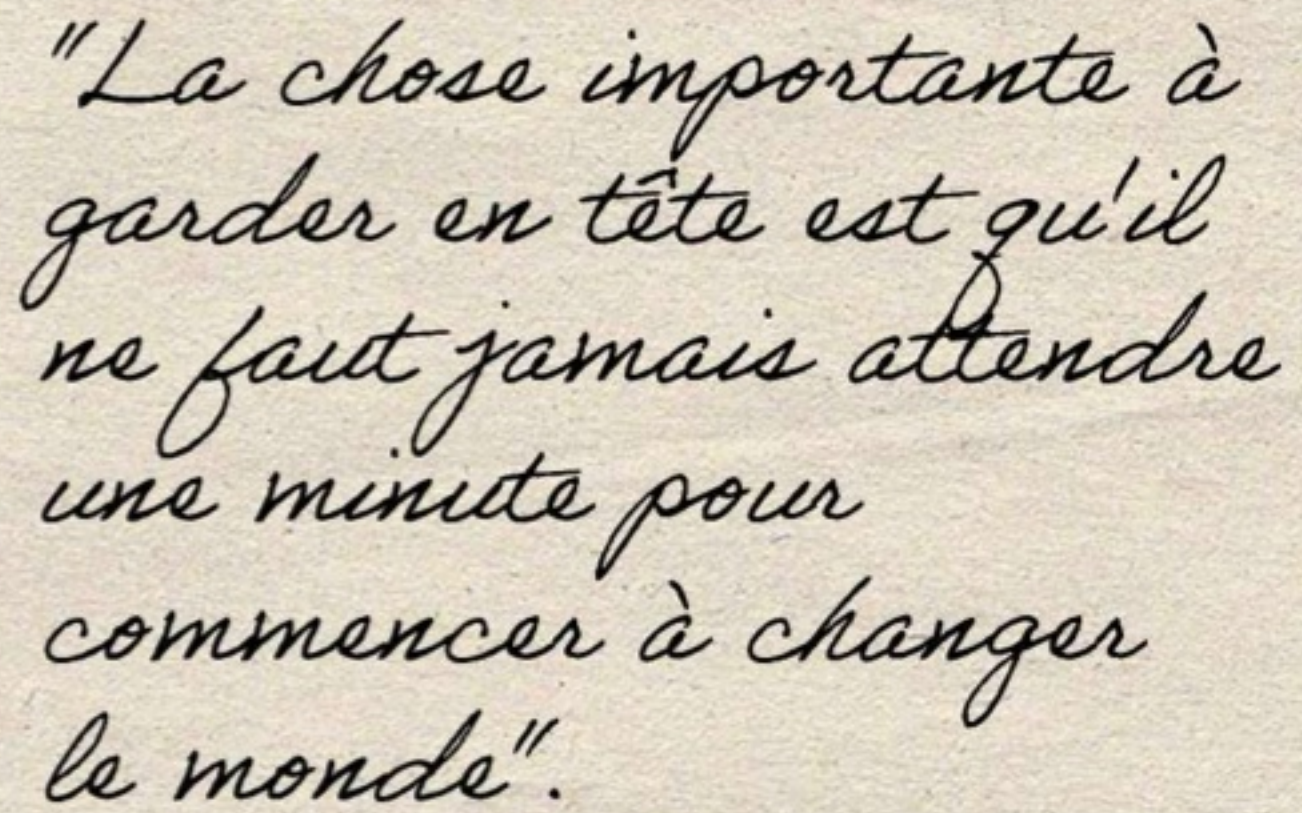 "La chose importante à
garder en tête est qu'il
ne faut jamais attendre
une minute pour
commencer à changer
le monde".